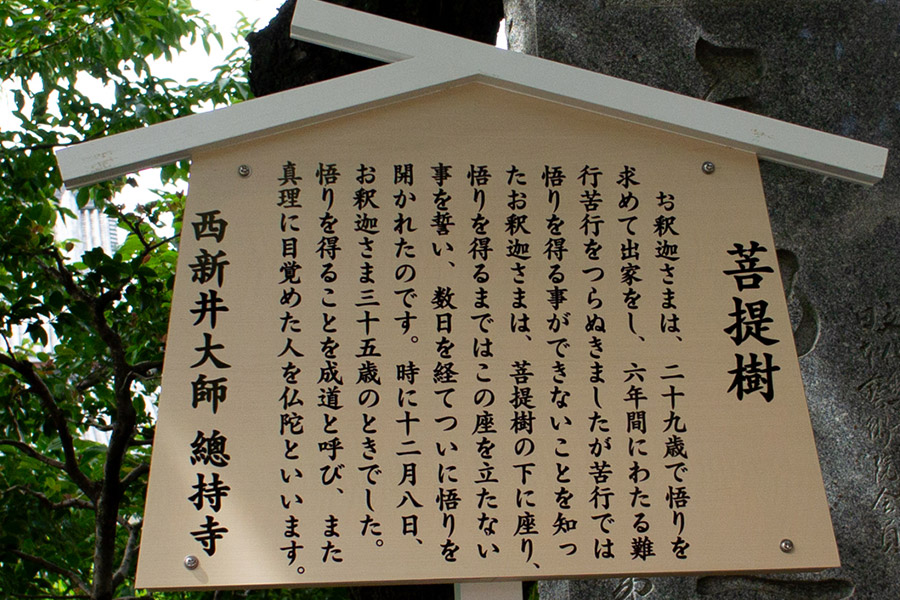 菩提樹
お釈迦さまは、二十九歳で悟りを
求めて出家をし、六年間にわたる難
行苦行をつらぬきましたが苦行では
悟りを得る事ができないことを知っ
たお釈迦さまは、菩提樹の下に座り、
悟りを得るまではこの座を立たない
事を誓い、数日を経てついに悟りを
開かれたのです。時に十二月八日、
お釈迦さま三十五歳のときでした。
悟りを得ることを成道と呼び、また
真理に目覚めた人を仏陀といいます。
西新井大師 總持寺